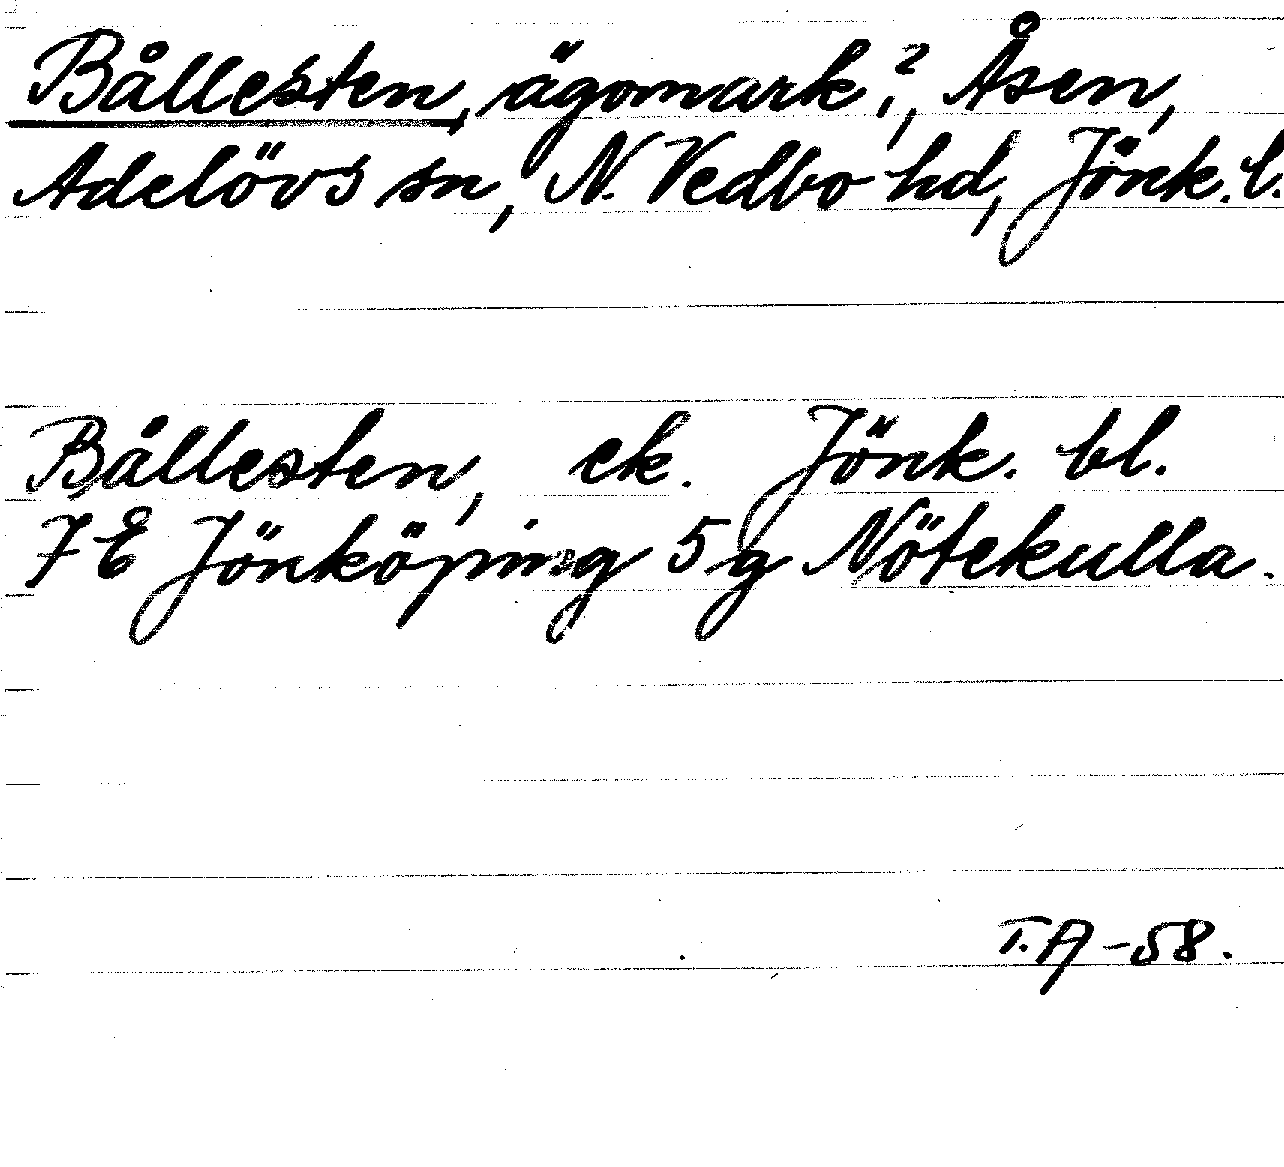 Bållesten, ägomark?, Åsen,
Adelövs sn, N. Vedbo hd, Jönk. l.
Bållesten, ek. Jönk. bl.
7E Jönköping 5g Nötekulla.
T.A -58.